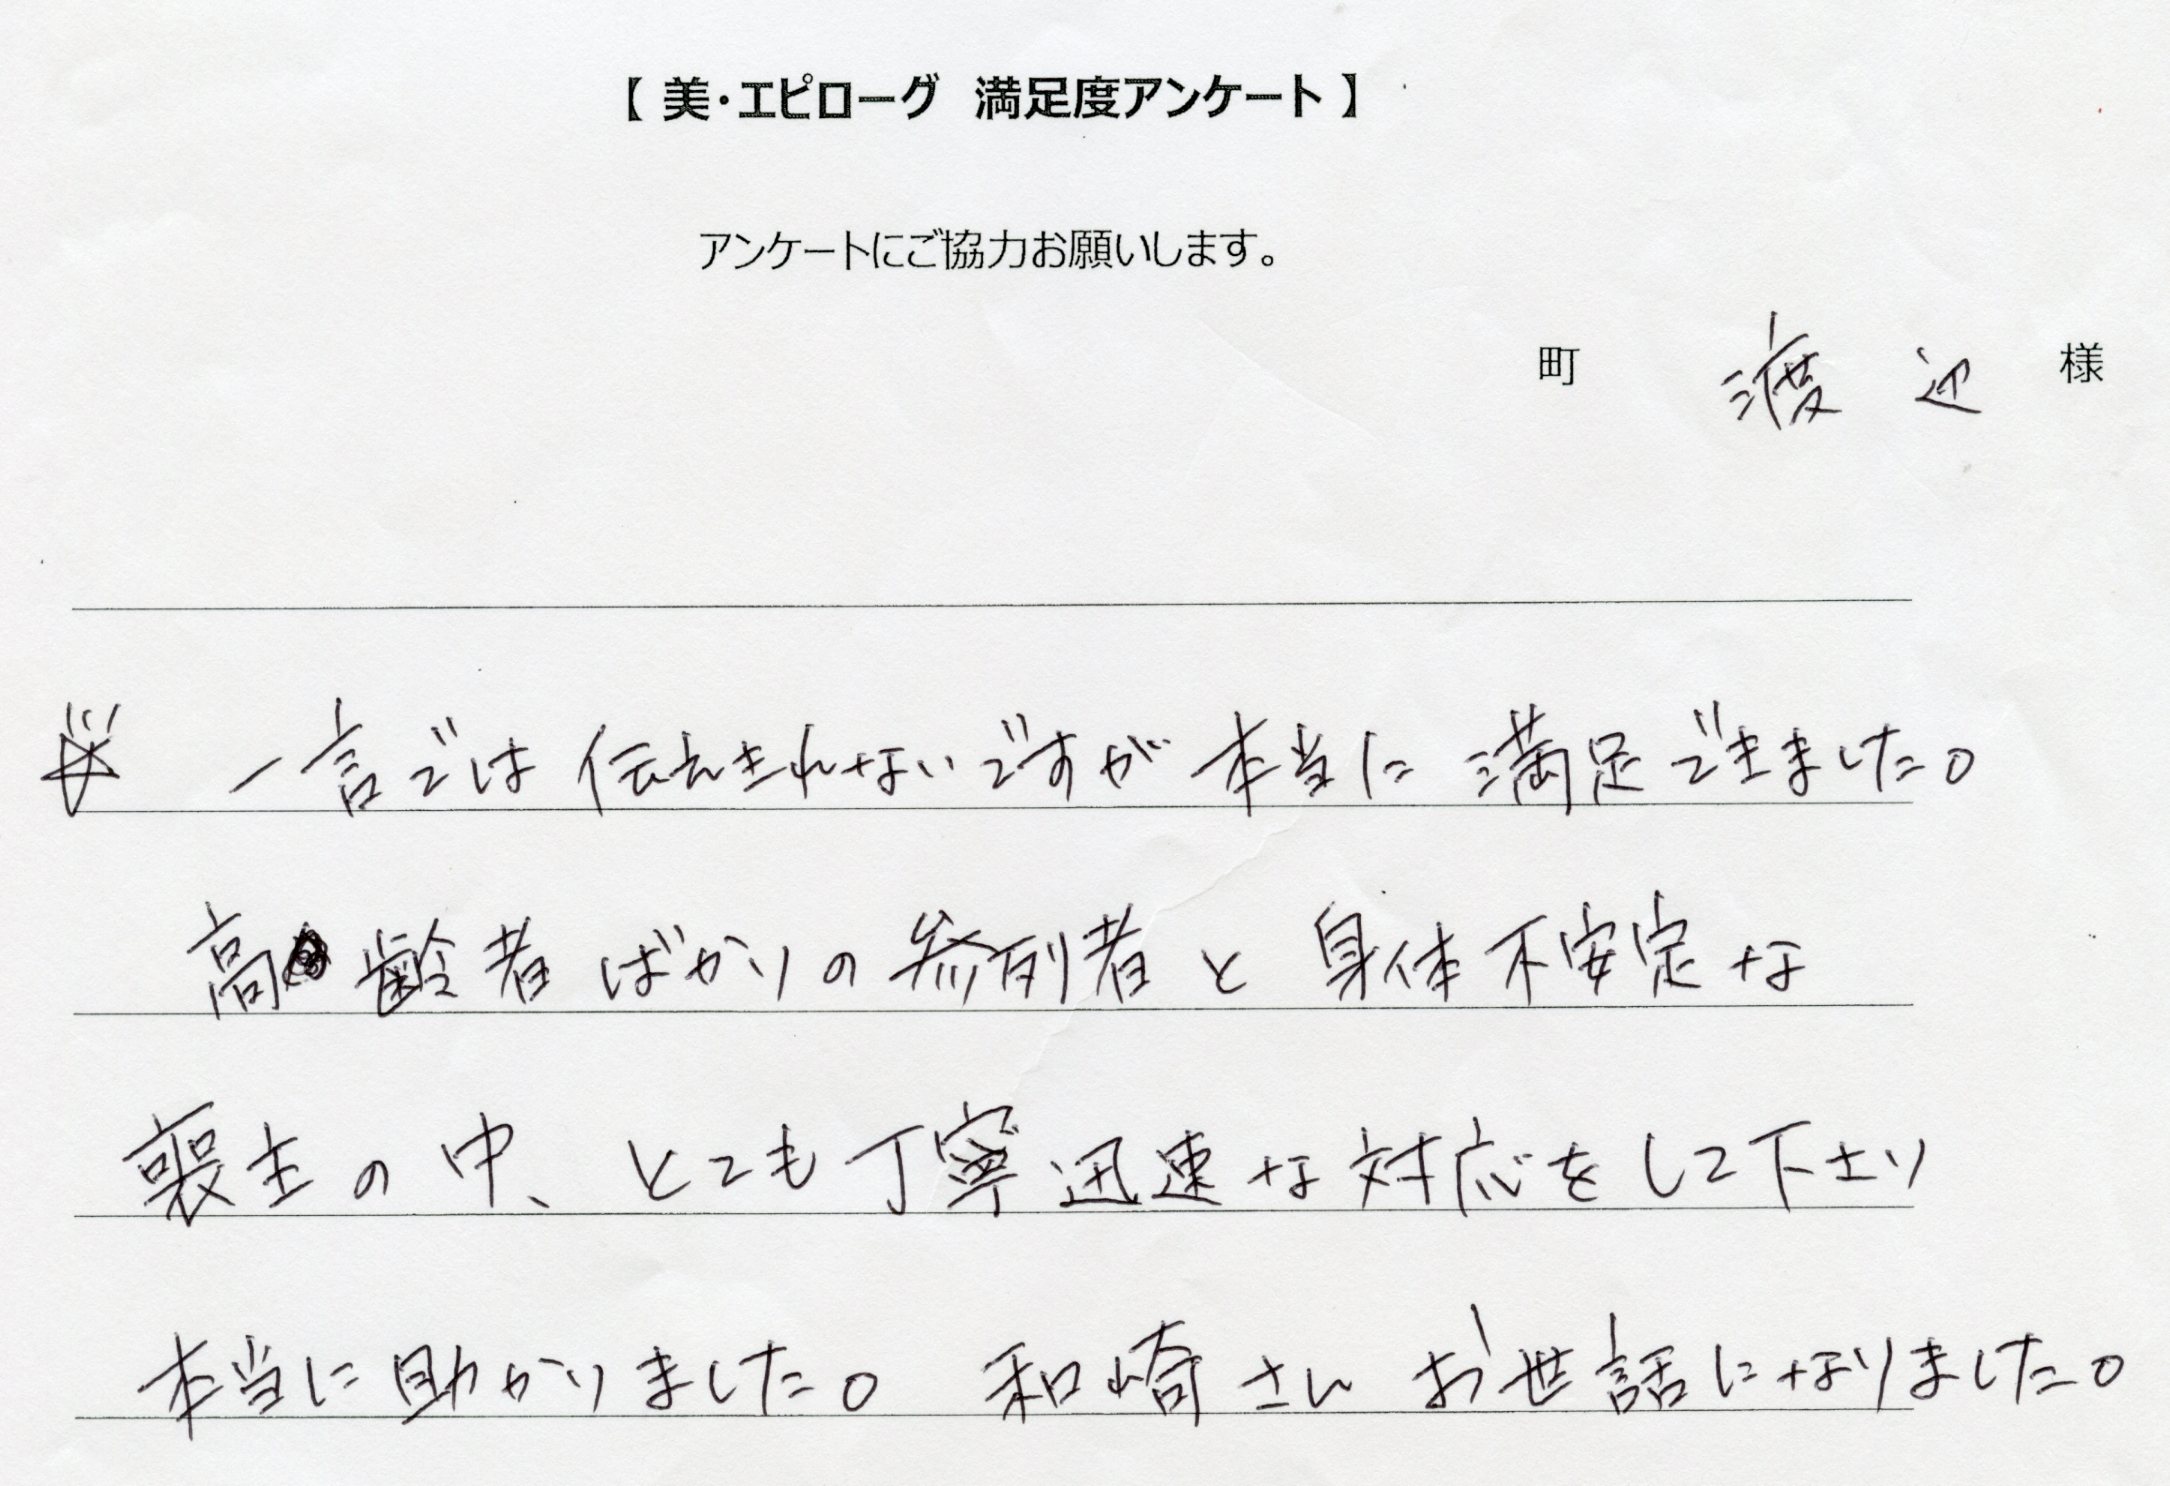 【 美・エピローグ 満足度アンケート 】
アンケートにご協力お願いします。
町 渡辺 様
☆ 一言では伝えきれないですが本当に満足できました。
高齢者ばかりの参列者と身体不安定な
喪主の中、とても丁寧迅速な対応をして下さり
本当に助かりました。 和崎さん お世話になりました。